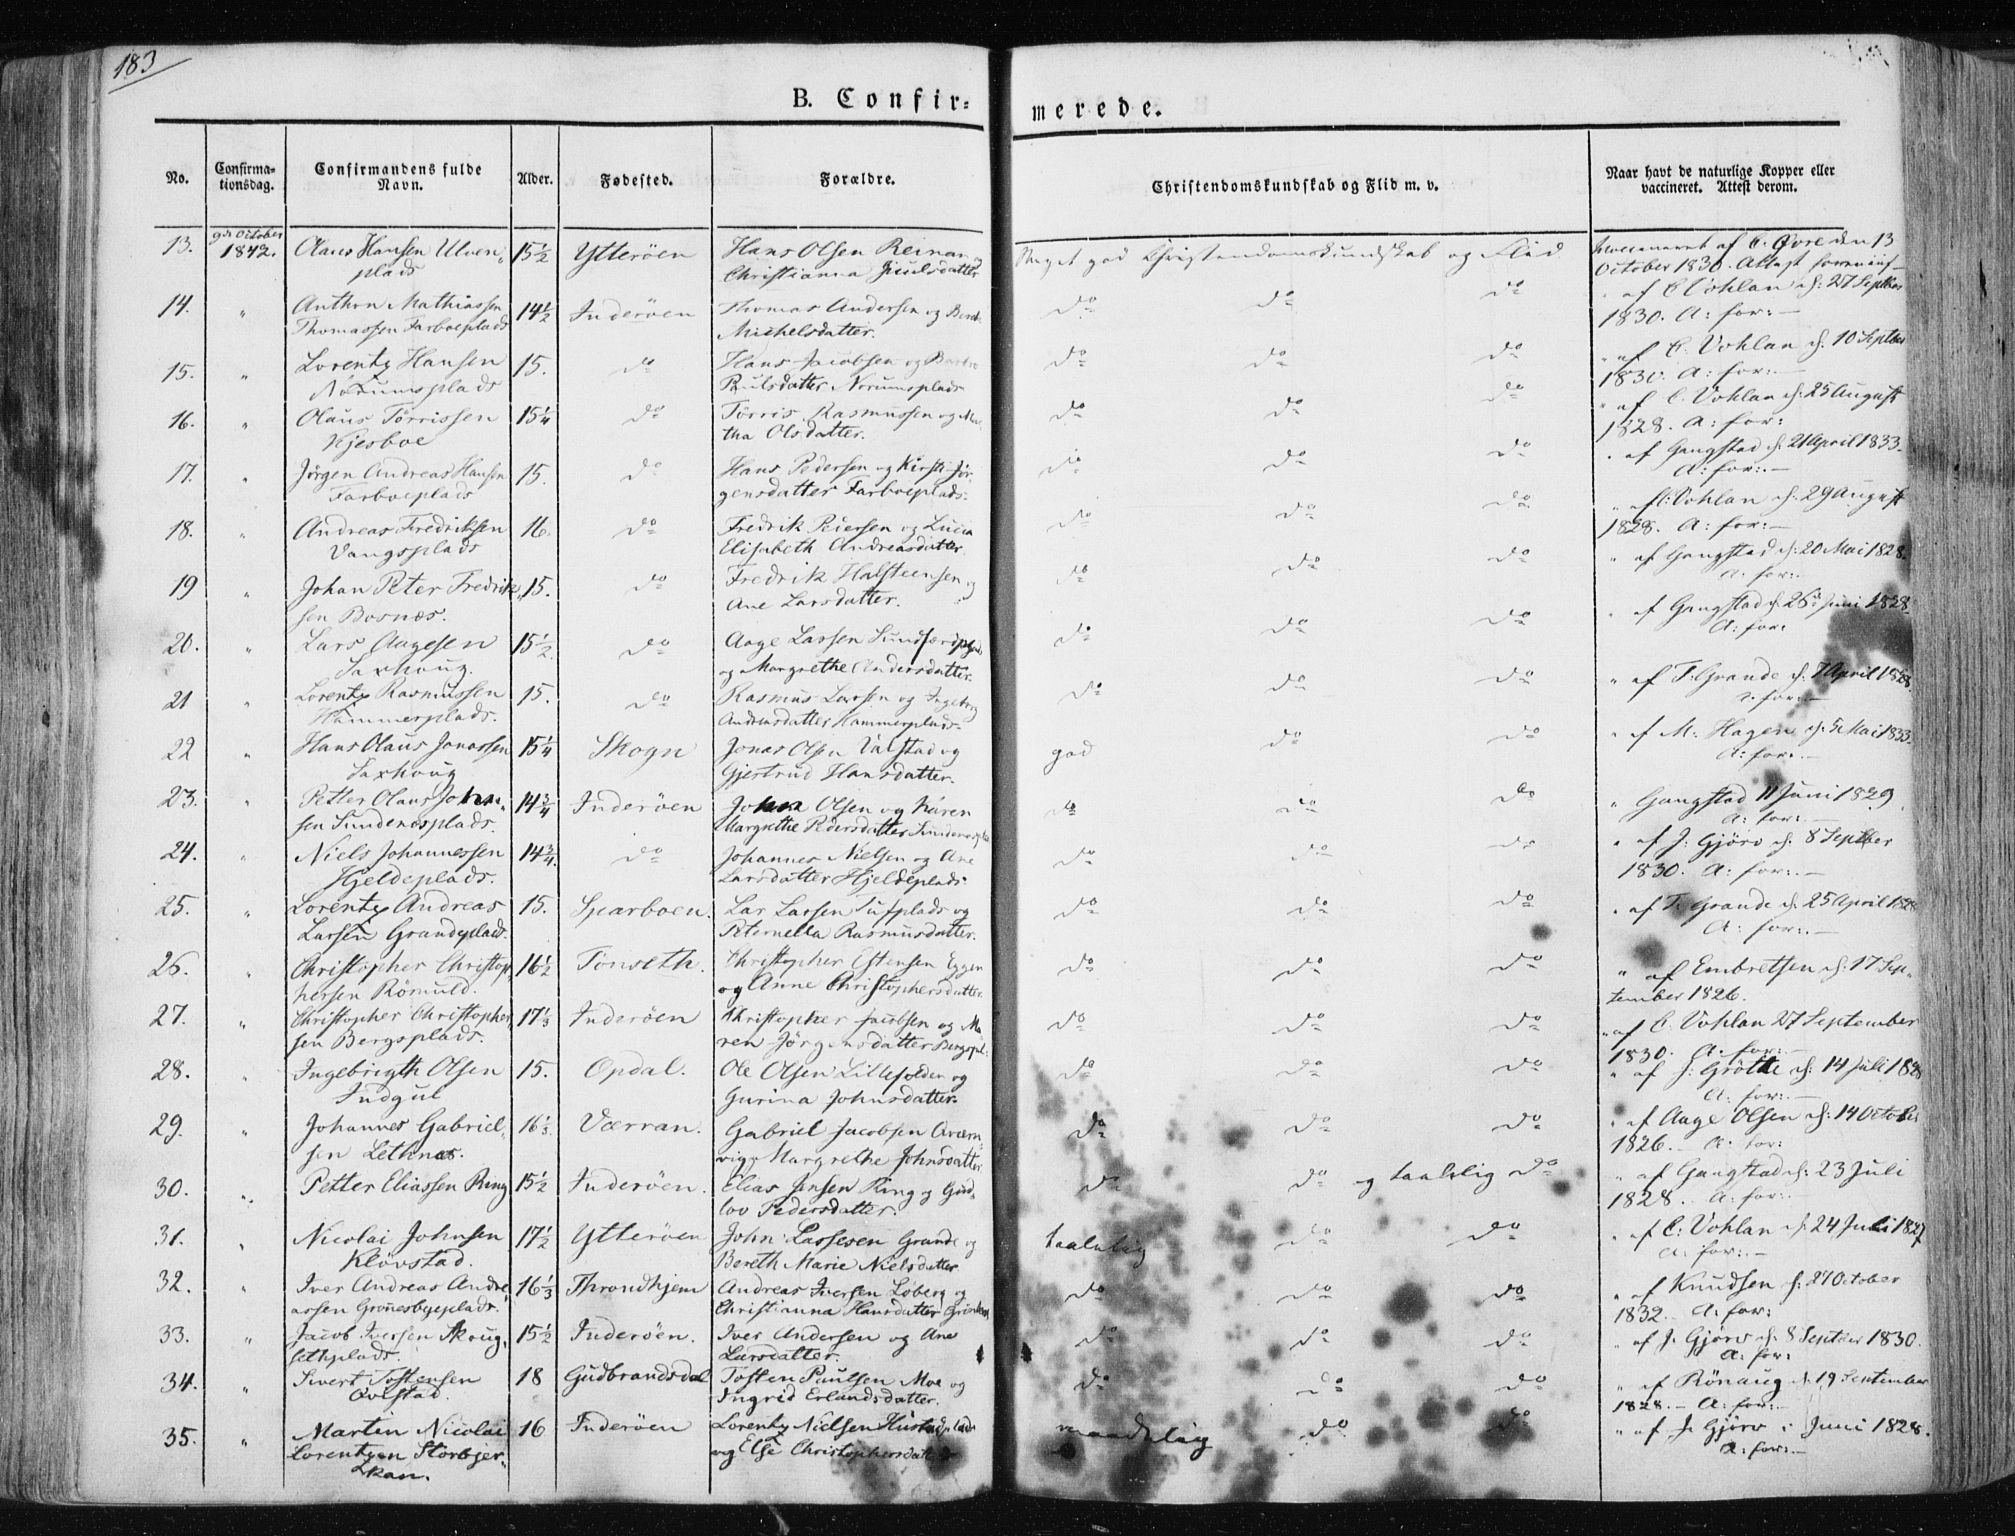 183
B. Confir- merede.
No.
Confirma-
tionsdag.
Confirmandens fulde
Navn.
Alder.
Fødested.
Forældre.
Christendomskundskab og Flid m. v.
Naar havt de naturlige Kopper eller
vaccineret. Attest derom.
13. 9de October 1842. Olaus Hansen Ulven- 15½ Ytteröen Hans Olsen Reinan og Meget god Christendomskundskab og Flid af C. Øvre den 13
plads Christianna Juulsdatter October 1830. Attest
14. " Anthon Mathiassen 14½ Inderöen Thomas Andersen og Do Do Do " af C Vohlan d: 27 Septber
Thomassen Farboeplads Michelsdatter. 1830. A: for:
15. " Lorentz Hansen 15. Do Hans Jacobsen og Do Do Do " af C. Vohlan d. 10 Septber
Norumsplads Paulsdatter Norumsplads 1830. A: for:
16. " Olaus Törrissen 15¼ Do Törris Rasmussen og Ma- Do Do Do " af C. Vohlan d: 25 August
Kjesboe tha Olsdatter. 1828. A: for:
17. " Jörgen Andreas Hansen 15. Do Hans Pedersen og Kirsti Jör- Do Do Do " af Gangstad d: 21 April 1833.
Farboeplads gensdatter Farboeplads. A: for:
18. " Andreas Fredriksen 16. Do Fredrik Petersen og Lucia Do Do Do " af C: Vohlan d: 29 August
Vangsplads Elisabeth Andreasdatter. 1828. A: for:
19 " Johan Peter Fredrik- 15. Do Fredrik Halsteensen og Do Do Do " af Gangstad d: 20 Mai 1828.
sen Bosnæs. Ane Larsdatter. A: for:
20. " Lars Aagesen 15½. Do Aage Lassen Do Do Do " af Gangstad d. 26 Juni 1828.
Saxhoug. og Margrethe Andersdatter. A: for:
21 " Lorentz Rasmussen 15. Do Rasmus Larsen og Ingeborg Do Do Do " af T. Grande d. 7 April 1828.
Hammerplads. Andreasdatter Hammerplads. A: for:
22 " Hans Olaus Jonassen 15¼ Skogn Jonas Olsen Valstad og god Do Do " af M. Hagen d. 5 Mai 1833.
Saxhoug Gjertrud Hansdatter. A: for:
23. " Petter Olaus John- 14¾ Inderöen John Olsen og Karen Do Do Do " Gangstad 11 Juni 1829
sen Sundenesplads. Margrethe Pedersdatter A: for:
24. " Niels Johannessen 14¾. Do Johannes Nielsen og Ane Do Do Do " af J. Gjörv d. 8 Septber
Hjeldeplads. Larsdatter Hjeldeplads. 1830. A: for:
25. " Lorentz Andreas 15. Sparboen. Lar Larsen Tufplads og Do Do Do " af T. Grande d. 25 April 1828
Larsen Grandeplads. Peternella Rasmusdatter. A: for:
26. " Christopher Christop- 16½ Tönseth. Christopher Estensen Eggen Do Do Do " af Embretsen d: 17 Sep-
hersen Römuld. og Anne Christophersdatter. tember 1826.
27. " Christopher Christopher- 17⅓ Inderöen Christopher Jacobsen og Ma- Do Do Do " af C. Vohlan 27 September
sen Bergsplads. ren Jörgensdatter Bergspl: 1830. A: for:
28. " Ingebrigth Olsen 15. Opdal. Ole Olsen Lillefolden og Do Do Do " af J: Grötte d: 14 Juli 1828
Indgul Gurina Johnsdatter. A: for:
29. " Johannes Gabriel- 16⅓. Værran. Gabriel Jacobsen Do Do Do " af Aage Olsen d: 14 October
sen Lethnes. Margrethe Johnsdatter. 1826. A: for:
30. " Petter Eliassen Ring 15½ Inderöen. Elias Jensen Ring og Gud- Do Do og taalelig Do " af Gangstad d: 23 Juli
lov Pedersdatter. 1828. A: for:
31. " Nicolai Johnsen 17½ Ytteröen John Lassesen Grande og taalelig Do Do " af C: Vohlan d: 24 Juli 1827
Klövstad. Bereth Marie Nielsdatter A: for:
32. " Iver Andreas Andre- 16⅓ Throndhjem Andreas Iversen Loberg og Do Do Do " af Knudsen d: 27 October
assen Grönesbyeplads. Christianna Hansdatter 1832. A: for:
33. " Jacob Iversen Skoug- 15½ Inderöen. Iver Andersen og Ane Do Do Do " af J. Gjörv d: 8 Septber 1830.
sethplads. Larsdatter. A: for:
34. " Sivert Tostensen 18 Gudbrandsdal Tosten Paulsen Moe og Do Do Do " af Rönaug d. 19 September
Qvistad. Ingrid Erlandsdatter. 1828. A: for:
35. " Martin Nicolai 16 Inderöen Lorentz Nielsen Hustadplads maadelig Do Do " af J. Gjörv i Juni 1828.
Lorentzen Storbjer- og Else Christophersdatter A: for:
kan.